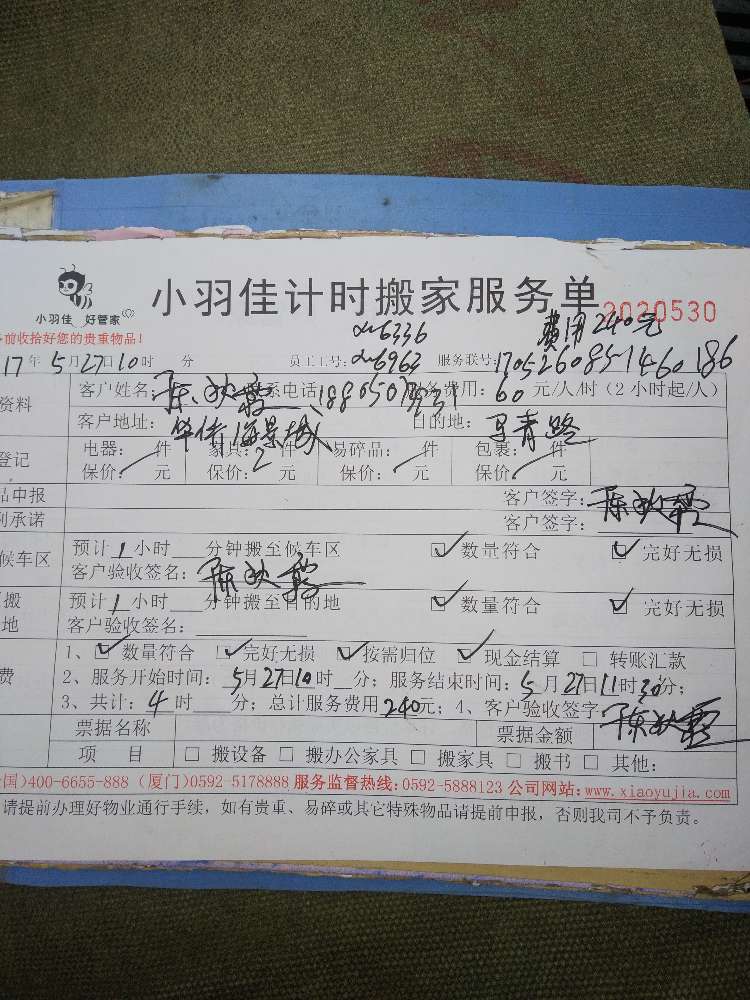 小羽佳 好管家
小羽佳计时搬家服务单
2020530
前收拾好您的贵重物品!
费用240元
6336
17年5月27日10时 分 员工工号: 6963 服务联号: 1705260851460186
资料 客户姓名: 陈 联系电话: 服务费用: 60 元/人/时(2小时起/人)
客户地址: 海景城 目的地: 马青路
登记 电器: 件 家具: 2 件 易碎品: 件 包裹: 件
保价: 元 保价: 元 保价: 元 保价: 元
品申报 客户签字: 陈
利承诺 客户签字:
候车区 预计1小时 分钟搬至候车区 ☑ 数量符合 ☑ 完好无损
客户验收签名: 陈
搬 预计1小时 分钟搬至目的地 ☑ 数量符合 ☑ 完好无损
地 客户验收签名:
1、☑ 数量符合 ☑完好无损 ☑按需归位 ☑现金结算 □ 转账汇款
费 2、服务开始时间: 5月27日10时 分; 服务结束时间: 5月27日11时30分;
3、共计: 4时 分; 总计服务费用240元; 4、客户验收签字: 陈
票据名称 票据金额
项 目 □ 搬设备 □ 搬办公家具 □ 搬家具 □ 搬书 □ 其他:
国)400-6655-888 (厦门)0592-5178888 服务监督热线:0592-5888123 公司网站:www.xiaoyujia.com
请提前办理好物业通行手续,如有贵重、易碎或其它特殊物品请提前申报,否则我司不予负责。